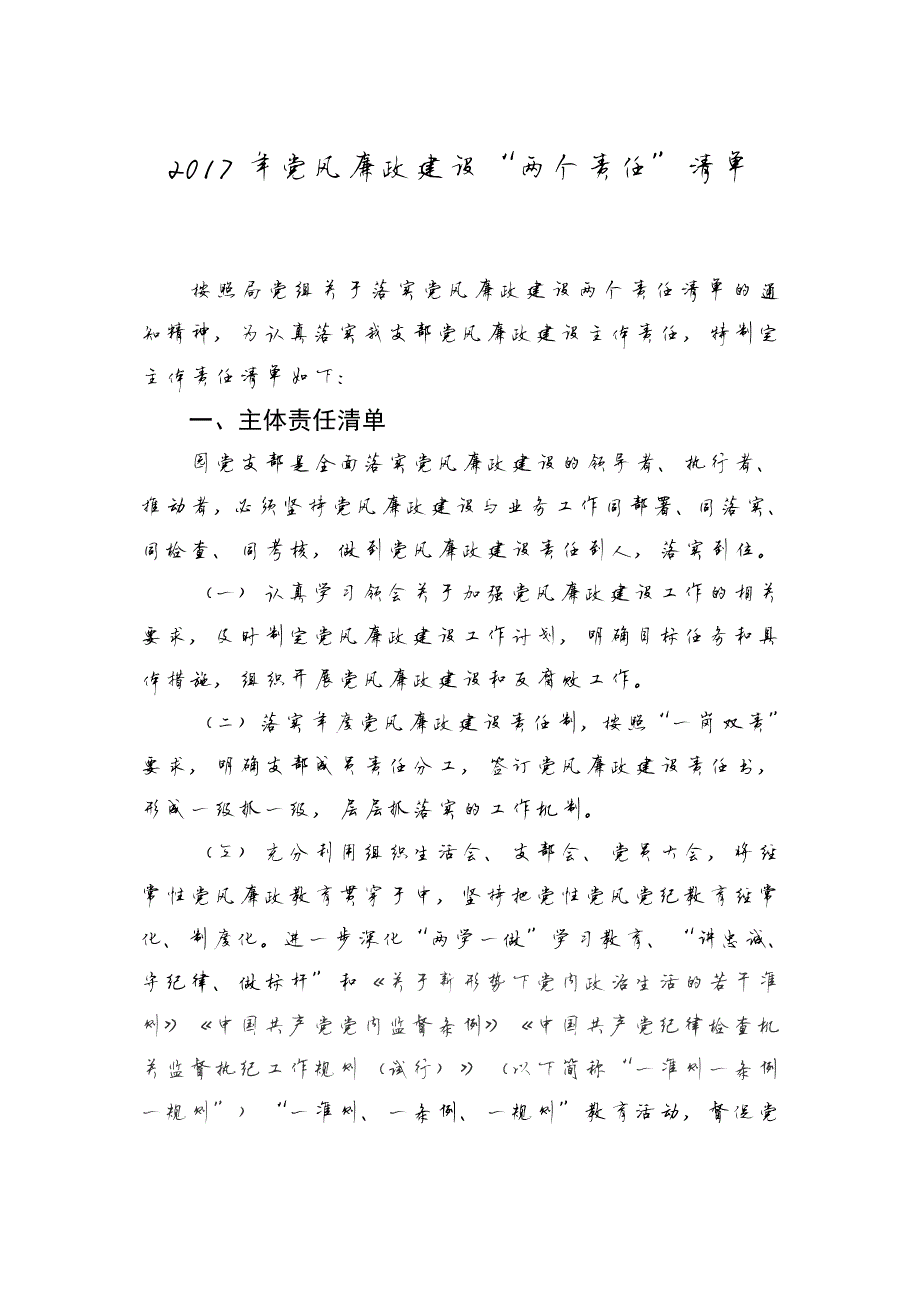 2017年党风廉政建设“两个责任”清单
按照局党组关于落实党风廉政建设两个责任清单的通
知精神，为认真落实我支部党风廉政建设主体责任，特制定
主体责任清单如下：
一、主体责任清单
园党支部是全面落实党风廉政建设的领导者、执行者、
推动者，必须坚持党风廉政建设与业务工作同部署、同落实、
同检查、同考核，做到党风廉政建设责任到人，落实到位。
（一）认真学习领会关于加强党风廉政建设工作的相关
要求，及时制定党风廉政建设工作计划，明确目标任务和具
体措施，组织开展党风廉政建设和反腐败工作。
（二）落实年度党风廉政建设责任制，按照“一岗双责”
要求，明确支部成员责任分工，签订党风廉政建设责任书，
形成一级抓一级，层层抓落实的工作机制。
（三）充分利用组织生活会、支部会、党员大会，将经
常性党风廉政教育贯穿于中，坚持把党性党风党纪教育经常
化、制度化。进一步深化“两学一做”学习教育、“讲忠诚、
守纪律、做标杆”和《关于新形势下党内政治生活的若干准
则》《中国共产党党内监督条例》《中国共产党纪律检查机
关监督执纪工作规则（试行）》（以下简称“一准则一条例
一规则”）“一准则、一条例、一规则”教育活动，督促党